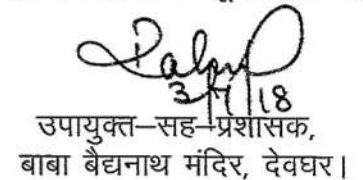 3/7/18
उपायुक्त–सह–प्रशासक,
बाबा बैद्यनाथ मंदिर, देवघर।